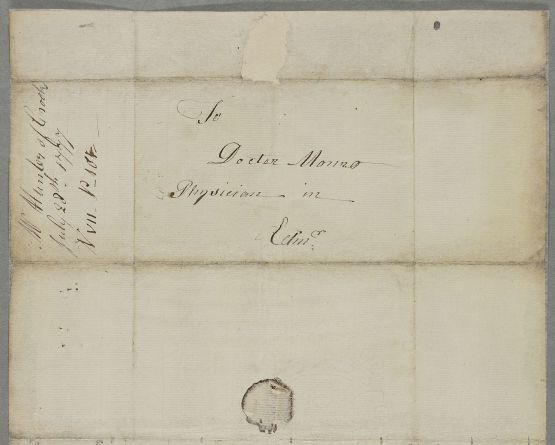 To
Doctor Monro
Physician in
Edinr
Mr Hunter of Crook
July 28th 1777
V VII P 104